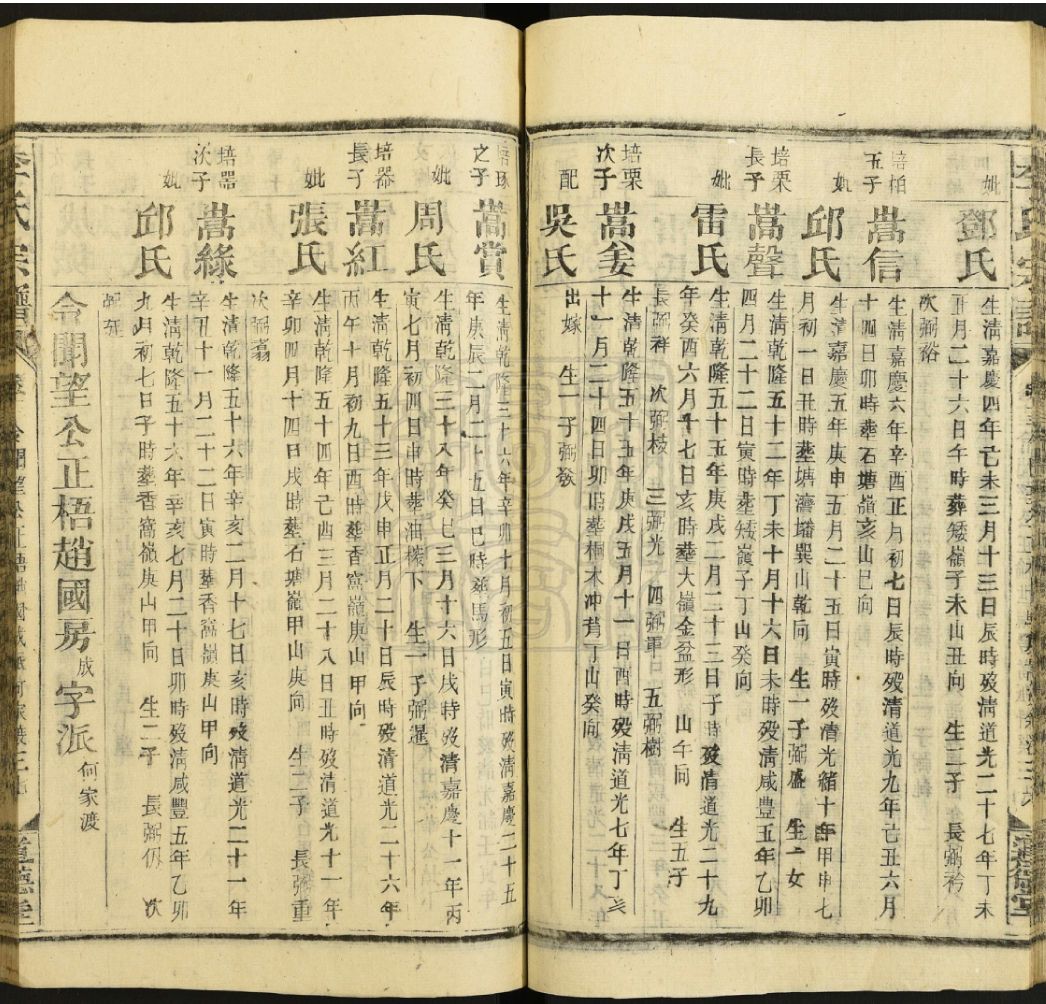 妣
鄧氏
生淸嘉慶四年己未三月十三日辰時歿淸道光二十七年丁未
正月二十六日午時葬矮嶺子未山丑向 生二子 長弼衿
次弼裕
培柏
五子
嵩信
生淸嘉慶六年辛酉正月初七日辰時歿淸道光九年己丑六月
十四日卯時葬石塘嶺亥山巳向
妣
邱氏
生淸嘉慶五年庚申五月二十五日寅時歿淸光緒十年甲申七
月初一日丑時塟塘濟墦巽山乾向 生一子弼盛 生一女
培栗
長子
嵩聲
生淸乾隆五十二年丁未十月十六日未時歿淸咸豐五年乙卯
四月二十二日寅時塟矮嶺子丁山癸向
妣
雷氏
生淸乾隆五十五年庚戌二月二十三日子時歿清道光二十九
年癸酉六月十七日亥時塟大嶺金盆形 山午向 生五子
長弼祥 次弼枝 三弼光 四弼軍 五弼樹
培栗
次子
嵩姜
生清乾隆五十五年庚戌五月十一日酉時歿清道光七年丁亥
十一月二十四日卯時塟桐木冲背丁山癸向
配
吳氏
出嫁 生一子弼發
培琢
之子
嵩賞
生淸乾隆三十六年辛卯十月初五日寅時歿清嘉慶二十五
年庚辰二月二十五日巳時塟馬形
妣
周氏
生淸乾隆三十八年癸巳三月十六日戌時歿清嘉慶十一年丙
寅七月初四日申時塟油榨下 生一子弼暹
培器
長子
嵩紅
生淸乾隆五十三年戊申正月二十日辰時歿清道光二十六年
丙午十月初九日酉時塟香窩嶺庚山甲向
妣
張氏
生淸乾隆五十四年己酉三月二十八日丑時歿清道光十一年
辛卯四月十四日戌時塟石塘嶺甲山庚向 生二子 長弼重
次弼翥
培器
次子
嵩綠
生清乾隆五十六年辛亥二月十七日亥時歿清道光二十一年
辛丑十一月二十二日寅時塟香窩嶺庚山甲向
妣
邱氏
生淸乾隆五十六年辛亥七月二十日卯時歿淸咸豐五年乙卯
九月初七日子時塟香窩嶺庚山甲向 生二子 長弼仍 次
令聞望公正梧趙國房成字派何家渡
李氏宗譜